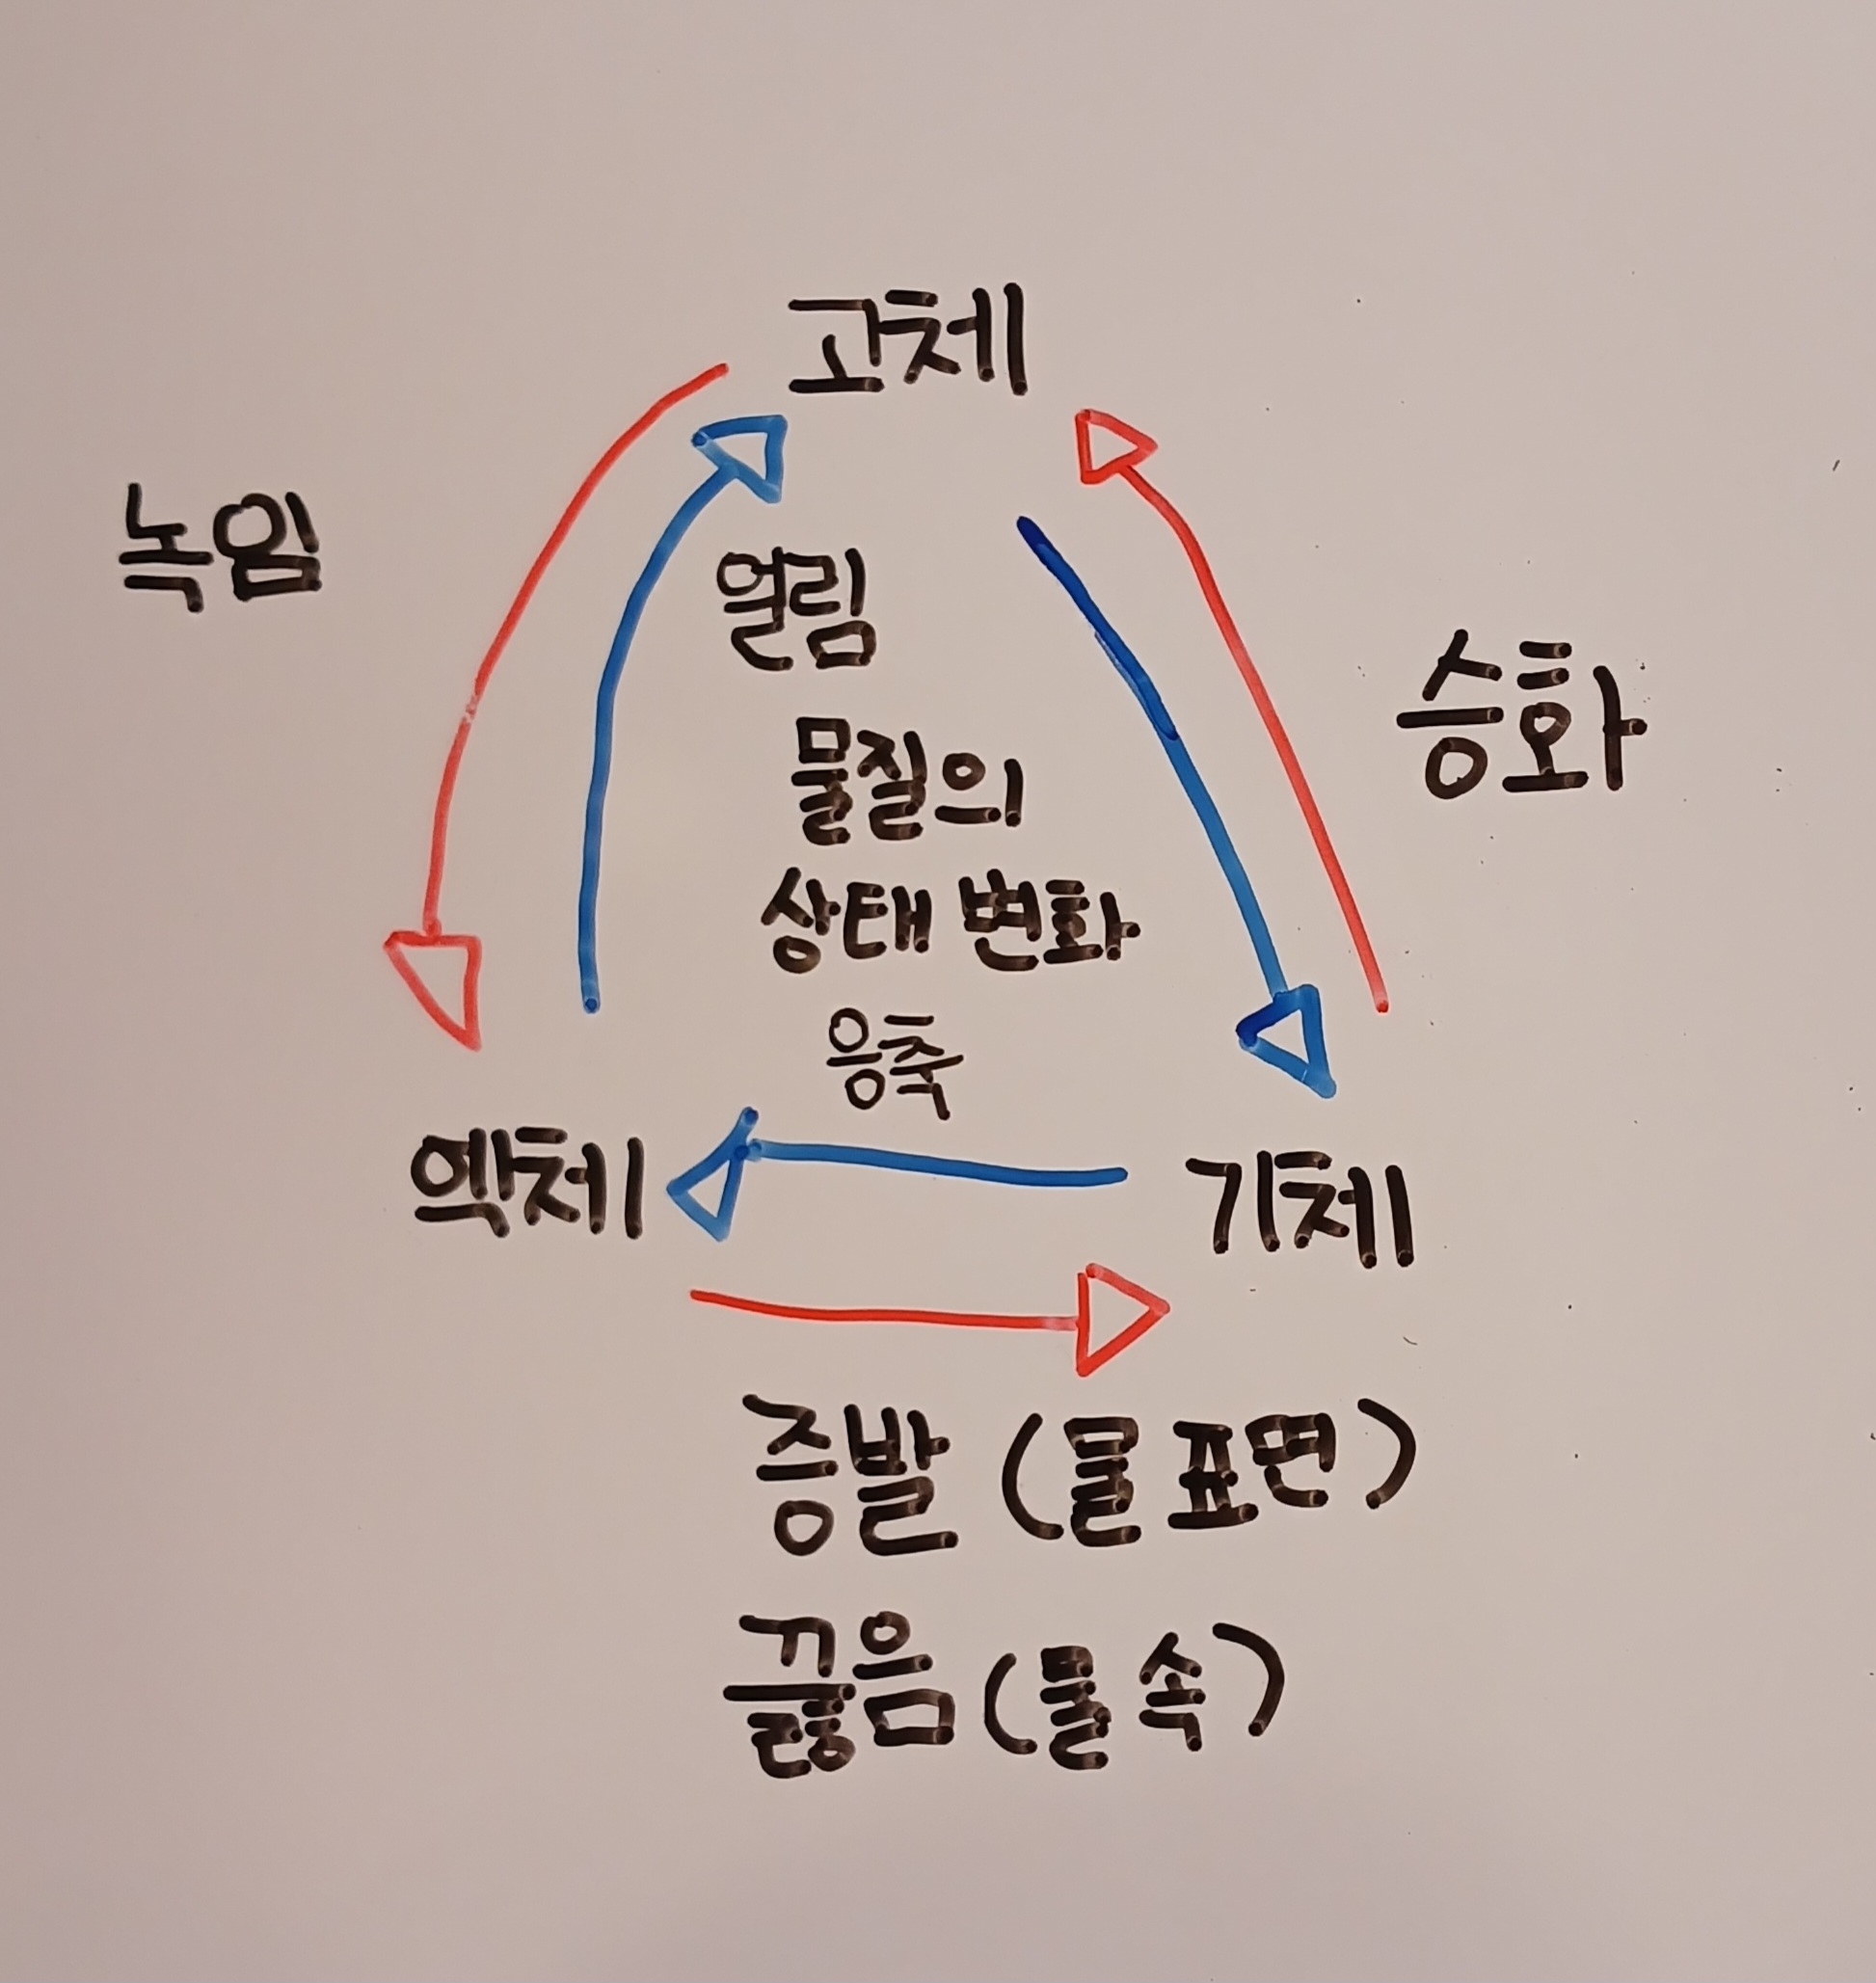 고체
녹임
열림
승화
물질의
상태 변화
응축
액체
기체
증발 (물 표면)
끓음 (물 속)